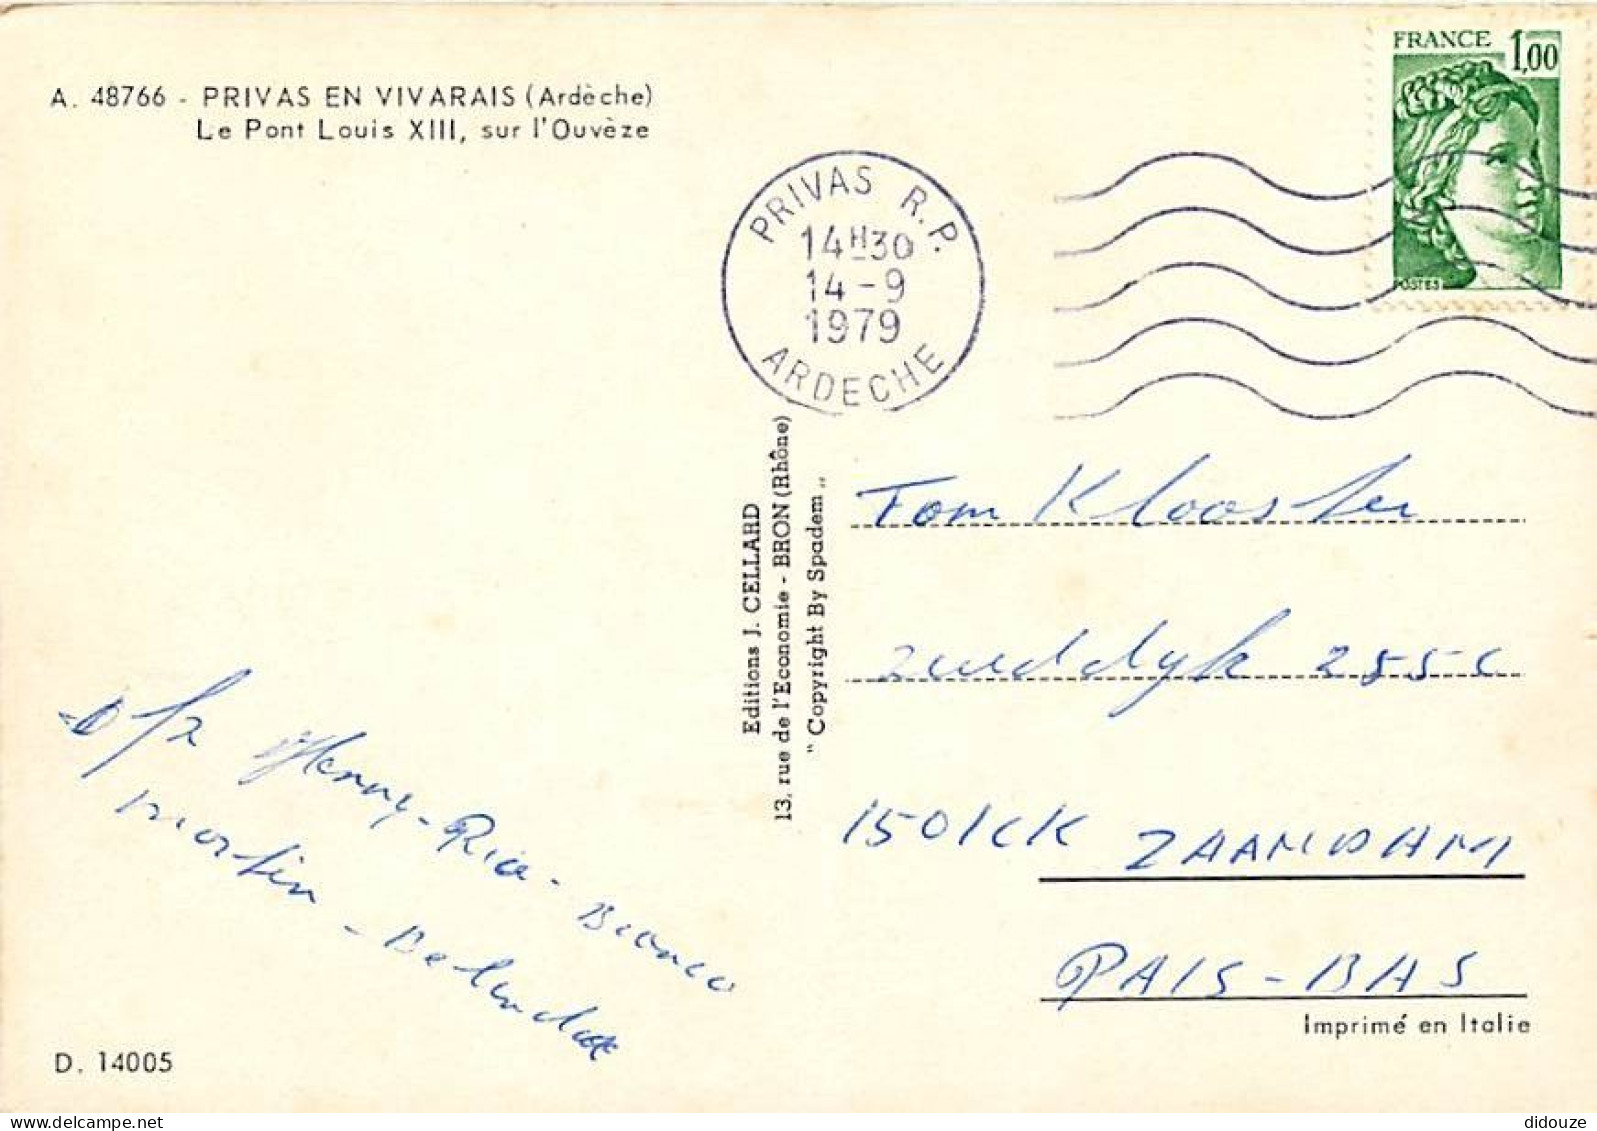 A. 48766 - PRIVAS EN VIVARAIS (Ardèche)
Le Pont Louis XIII, sur l'Ouvèze
FRANCE 1,00
POSTES
PRIVAS R.P.
14H30
14-9
1979
ARDECHE
Editions J. CELLARD
13, rue de l'Economie - BRON (Rhône)
" Copyright By Spadem „
Tom Klooster
1501CK ZAANDAM
PAIS-BAS
Henny - Ria - Bianca
Martin -
Imprimé en Italie
D. 14005
delcampe.net
didouze